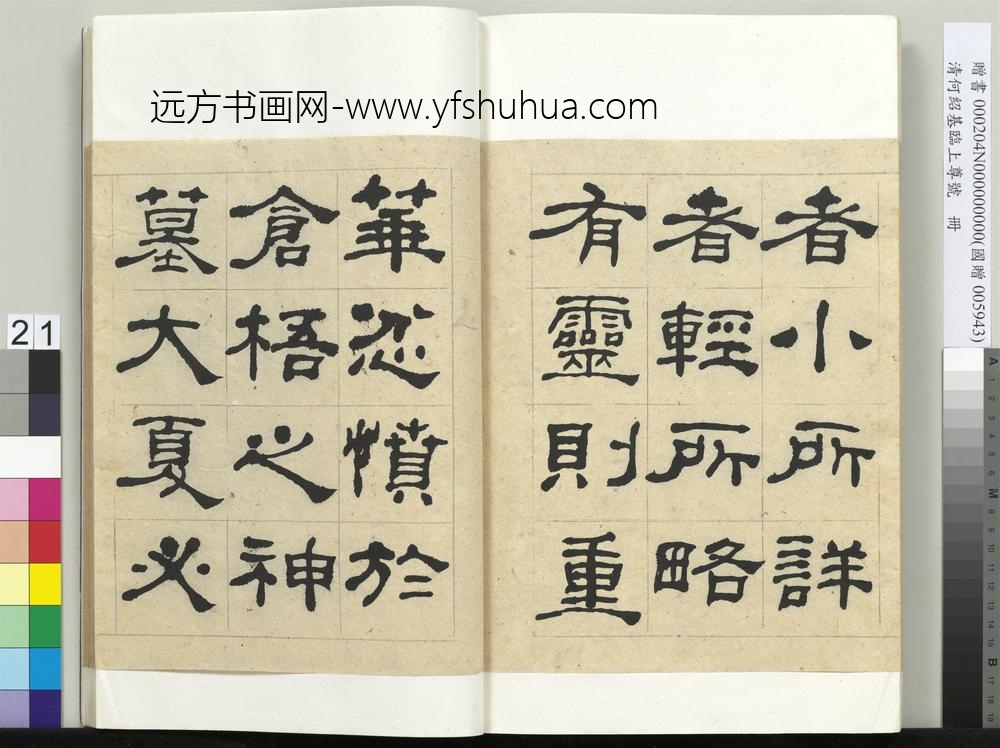 远方书画网-www.yfshuhua.com
者小所詳
者輕所略
有靈則重
華忿憤於
倉梧之神
墓大夏必
贈書 000204N000000000(國贈 005943)
清何紹基臨上尊號 冊
21
A 1 2 3 4 5 6 M 8 9 10 11 12 13 14 15 B 17 18 19